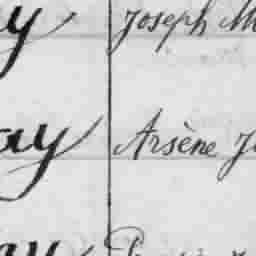 y Joseph M
ay Arsène J
ay